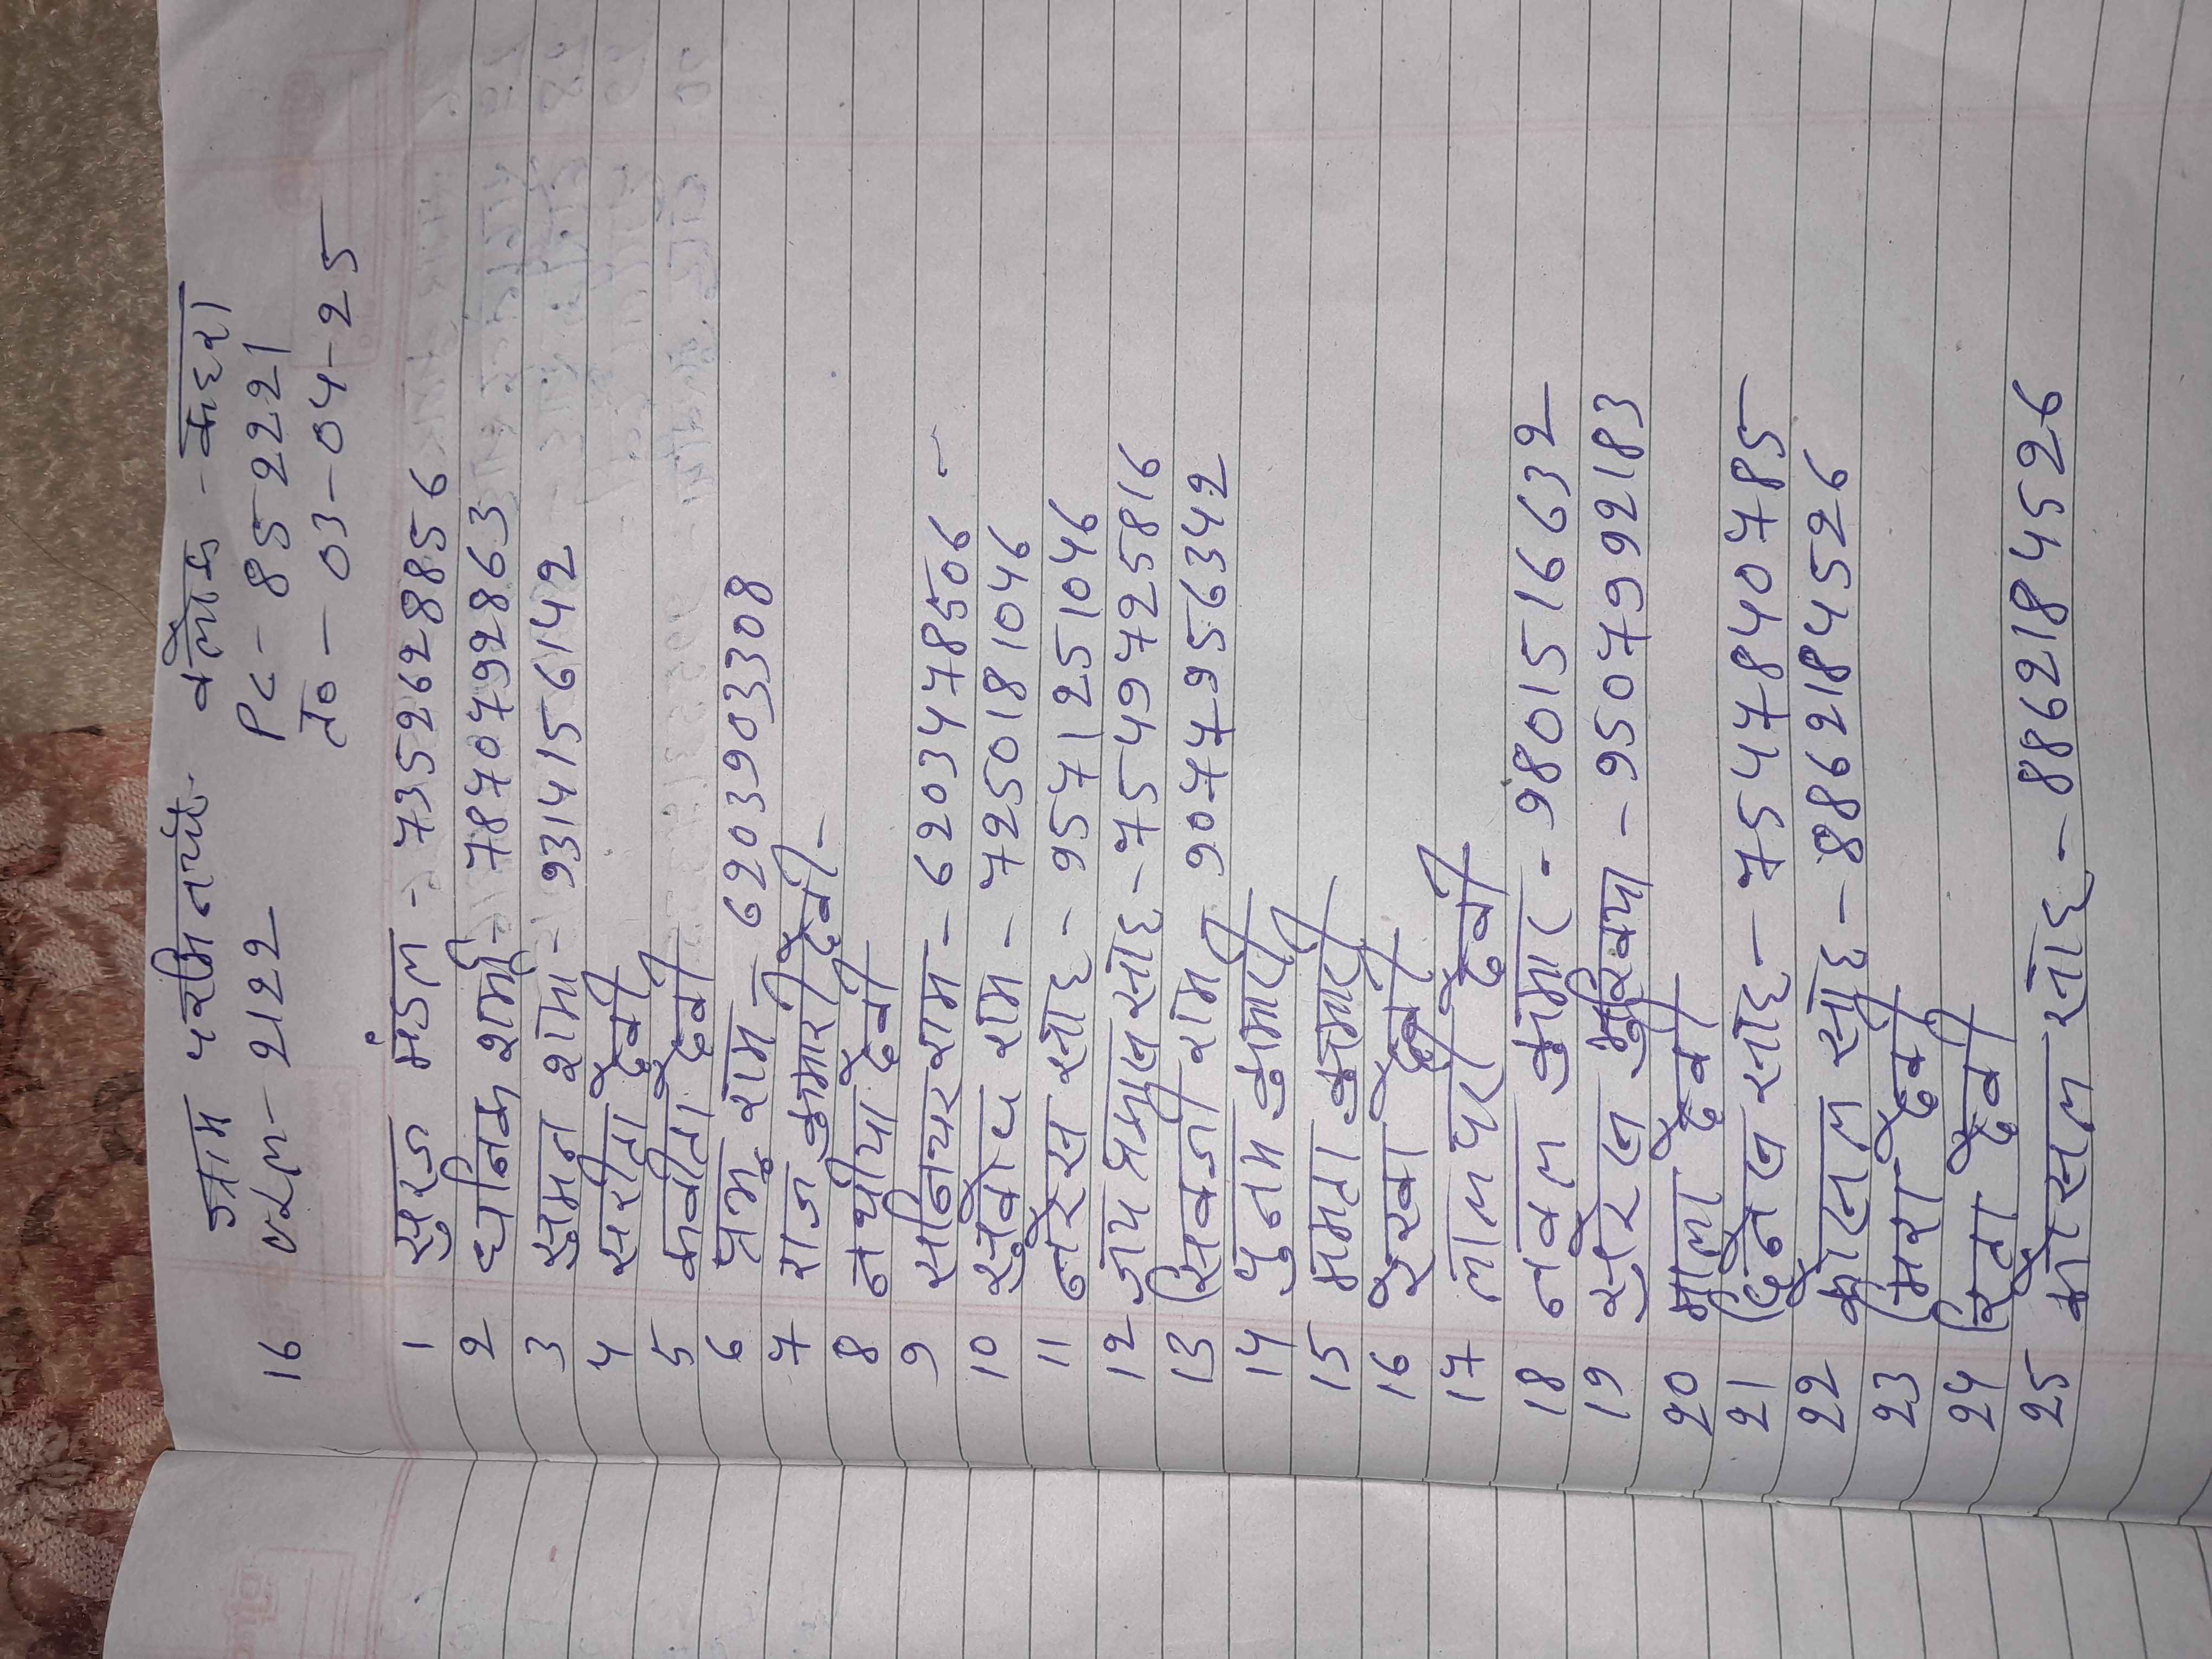 ग्राम परमिनचंक बेलाम - केदवा
16 वलम- 2122 Pc - 852221
ता० - 03-04-25
1 सुरज मंडल - 7352628856
2 धनिक शर्मा - 7870792863
3 सुमन शर्मा - 9314156142
4 सरीता देवी
5 कवीता देवी
6 प्रभू राम - 6203903308
7 राज कुमारी देवी -
8 नथीया देवी
9 सनिचर राम - 6203478506 -
10 सुबोध राम - 7250181046
11 नरेस साह - 9571251046
12 जय प्रकाश साह - 7549725816
13 सिवजी राम 9047956342
14 पुनम कुमारी
15 ममता कुमारी
16 रेखा देवी
17 लालपरी देवी
18 नवल कुमार - 9801516632
19 सुरेज मुखिया - 9507992183
20 माला देवी
21 दिनेज साह - 7547840785
22 कोसल साह - 8862184526
23 मिरा देवी
24 रिता देवी
25 कोसल साह - 8862184526